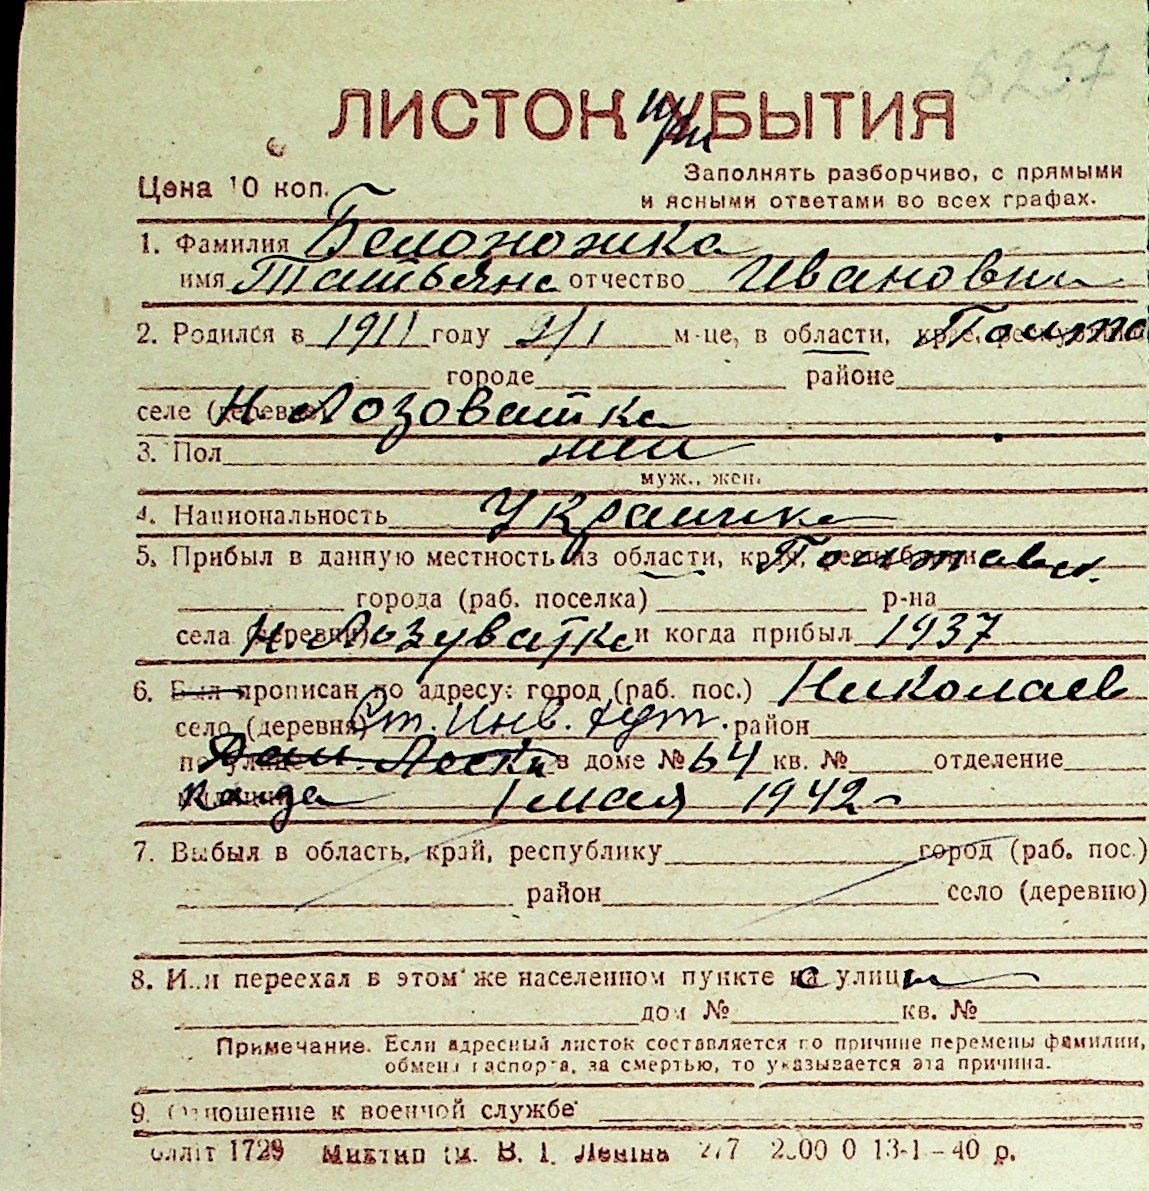 6257
ЛИСТОК при УБЫТИЯ
Цена 10 коп.
Заполнять разборчиво, с прямыми
и ясными ответами во всех графах.
1. Фамилия Белоножка
имя Татьяна отчество Ивановна
2. Родился в 1911 году 9/1 м-це, в области, крае, республике
городе районе
селе (деревне) Н. Лозоватка
3. Пол жен
муж., жен.
4. Национальность Украинка
5. Прибыл в данную местность из области, края, республики Полтавск.
города (раб. поселка) р-на
села (деревни) Н. Лозуватка и когда прибыл 1937
6. Был прописан по адресу: город (раб. пос.) Николаев
село (деревня) Ст. Инв. хут. район
по улице в доме № 64 кв. № отделение
когда 1 мая 1942
7. Выбыл в область, край, республику город (раб. пос.)
район село (деревню)
8. Или переехал в этом же населенном пункте с улицы
дом № кв. №
Примечание. Если адресный листок составляется по причине перемены фамилии,
обмена паспорта, за смертью, то указывается эта причина.
9. Отношение к военной службе
1729 В. І. Леніна 13-1-40 р.